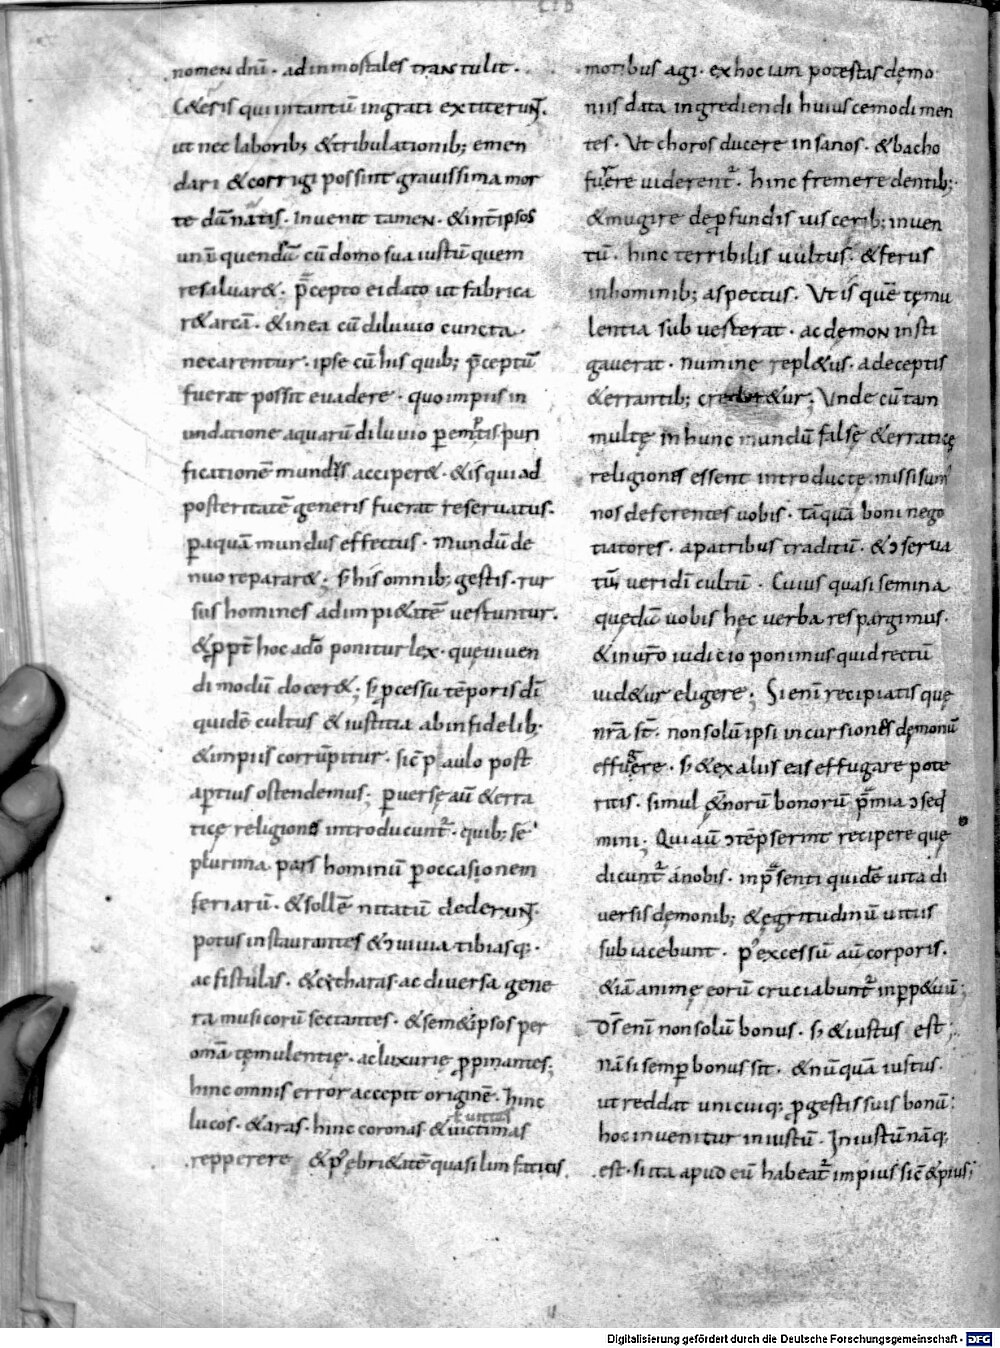 nomen dnī · ad inmortales transtulit ·
C&eris qui intantū ingrati extiterunt.
ut nec laborib; & tribulationib; emen
dari & corrigi possint gravissima mor
te dānatis · Invenit tamen · & int̄ ipsos
unū quendā cū domo sua iustū quem
resaluar& · p̄cepto ei dato ut fabrica
r& arcā · & in ea cū diluvio cuncta
necarentur · ipse cū his quib; p̄ceptū
fuerat possit evadere · quo impiis in
undatione aquarū diluvio peremtis puri
ficationē mundus acciper& · & is qui ad
posteritatē generis fuerat reservatus ·
p aquam mundus effectus · mundū de
nuo reparar& ; s; his omnib; gestis · rur
sus homines ad impi&atē vertuntur ·
& ppt̄ hoc a dō ponitur lex · quę viven
di modū docer& ; s; pcessu tēporis dī
quidē cultus & iustitia ab infidelib;
& impiis corrūpitur · sic̄ paulo post
aptius ostendemus ; pversę aū & erra
ticę religiones introducunt̄ · quib; se
plurima pars hominū p occasionem
feriarū · & sollēnitatū dederunt
potus instaurantes & ɔvivia tibiasq; ·
ac fistulas · & cytharas · ac diversa gene
ra musicorū sectantes · & sem&ipsos per
omā tęmulentię · ac luxurię ppinantes ;
hinc omnis error accepit originē · hinc
lucos · & aras · hinc coronas & victimas
repperere & p' ebri&atē quasi limfaticis
motibus agi · ex hoc iam potestas dęmo
niis data ingrediendi huiuscemodi men
tes · Ut choros ducere insanos · & bacho
fuere viderent̄ · hinc fremere dentib;
& mugire de pfundis viscerib; inven
tū · hinc terribilis vultus · & ferus
in hominib; aspectus · Ut is quē tęmu
lentia subverterat · ac demon insti
gaverat · numine repl&us · a deceptis
& errantib; cred&ur ; Unde cū tam
multę in hunc mundū falsę & erraticę
religiones essent introductę · missi sum'
nos deferentes vobis · tāquā boni nego
tiatores · a patribus traditū · & ɔserva
tū veri dī cultū · Cuius quasi semina
quędā vobis hęc verba respargimus ·
& in vr̄o iudicio ponimus quid rectū
vid&ur eligere ; Si enī recipiatis quę
nr̄a st̄ · non solū ipsi incursiones dęmonū
effugere · s; & ex aliis eas effugare pote
ritis · simul & ęt̄norū bonorū p̄mia ɔseq
mini ; Qui aū ɔtēpserint recipere quę
dicunt̄ a nobis · in p̄senti quidē vita di
versis dęmonib; & ęgritudinū vitiis
subiacebunt · p' excessū aū corporis ·
& iā animę eorū cruciabunt̄ in pp&uū ;
D̄s enī non solū bonus · s; & iustus est ;
nā si semp bonus sit · & nūquā iustus ·
ut reddat unicuiq; p gestis suis bonū :
hoc invenitur iniustū · Iniustū nāq;
est · si ita apud eū habeat̄ impius sic̄ & pius ;
Digitalisierung gefördert durch die Deutsche Forschungsgemeinschaft · DFG